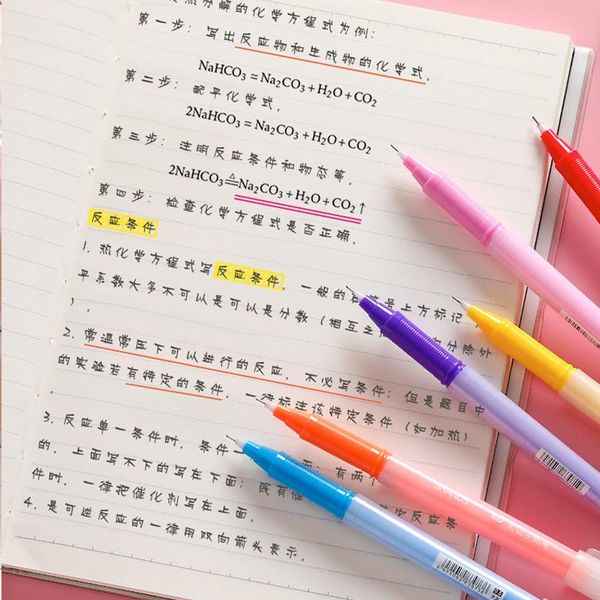 热分解的化学方程式为例:
第一步: 写出反应物和生成物的化学式。
NaHCO₃ = Na₂CO₃ + H₂O + CO₂
第二步: 配平化学式。
2NaHCO₃ = Na₂CO₃ + H₂O + CO₂
第三步: 注明反应条件和物态等。
2NaHCO₃ ≜ Na₂CO₃ + H₂O + CO₂↑
第四步: 检查化学方程式是否正确。
反应条件
1. 热化学方程式写反应条件, 一般的 是上方标记
系数大多不可以是可以是分数 (相 分除外
) 。
2. 常温常用下可以进行的反应, 不必写条件; 但是题目中
的某 有特定的条件, 一律标注该特定条件 (如加热)
3. 反应单一条件时, 条件 有两个
的, 上面写不下的写在下面; 既有催 反应条
件时, 一律把催化剂写在上面。
4. 是可逆反应的一律用双向箭头表示。